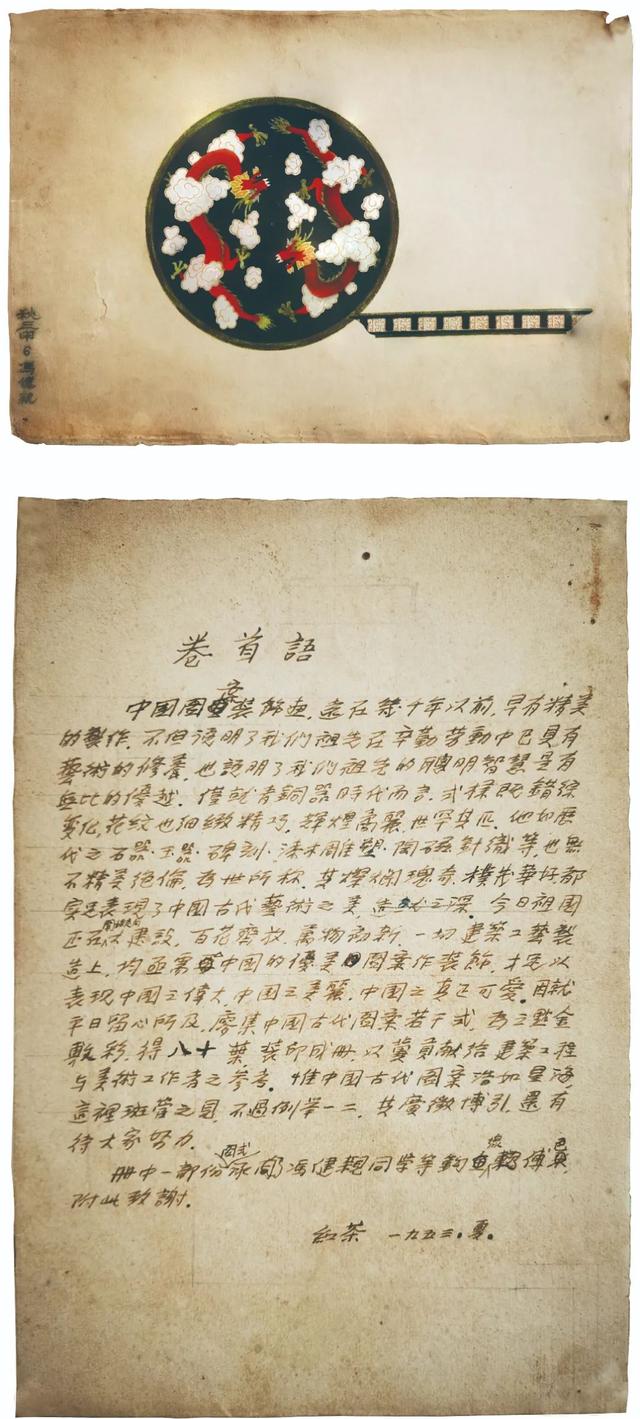 秋三甲 6 馮健親
卷首語
中国圖案裝飾畫,遠在幾千年以前,早有精美
的製作,不但說明了我們祖先在辛勤勞動中已具有
藝術的修養,也說明了我們祖先的聰明智慧是有
無比的優越.僅就青銅器時代而言,式樣既錯綜
變化,花紋也細緻精巧,輝煌富麗,世罕其匹.他如歷
代之石器.玉器.碑刻.漆木雕塑.陶磁針織等,也無
不精美絕倫,為世所称.其燦爛瑰奇.樸茂華好,都
足表現了中國古代藝術之美,今日祖國
正在建設,百花齊放,萬物向新,一切建築工藝製
造上,均亟需中國的優美圖案作裝飾,才足以
表現中國之偉大,中國之美麗,中國之真正可愛.因就
平日留心所及,廣集中國古代圖案若干式,為之點金
敷彩,得八十葉,裝印成冊,以冀貢献给建築工程
与美術工作者之參考.惟中国古代圖案浩如星海,
這裡斑管之見,不過例举一二,其廣徵博引,還有
待大家努力.
冊中一部份圖式承馮健親同学等鈎傅色
附此致謝.
紅茶 一九五三.夏.